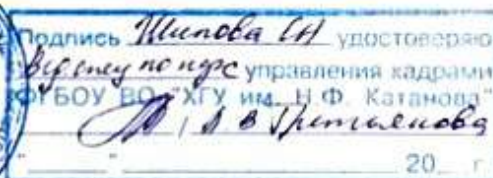 Подпись Шипова СА удостоверяю
Вед спец по перс управления кадрами
ФГБОУ ВО "ХГУ им. Н.Ф. Катанова"
А.В
"__"____20__г